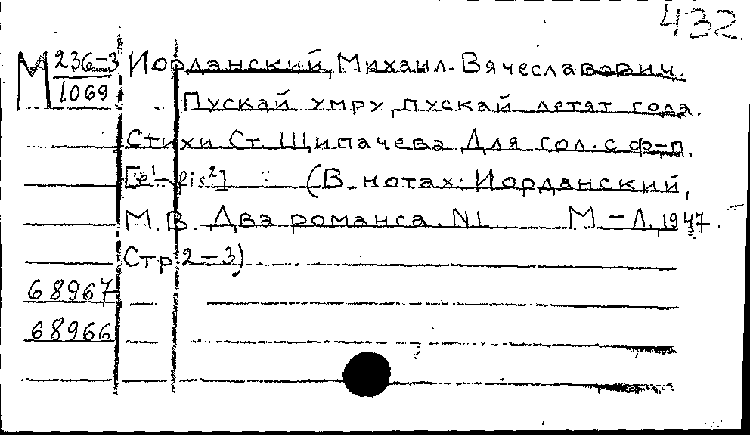 432
М 236-3 Иорданский, Михаил Вячеславович.
1069 Пускай умру, пускай летят года.
Стихи Ст. Щипачева. Для гол. с ф-п.
[e¹-fis²] (В нотах: Иорданский,
М.В. Два романса. N1 М-Л., 1947.
Стр 2-3)
68967
68966